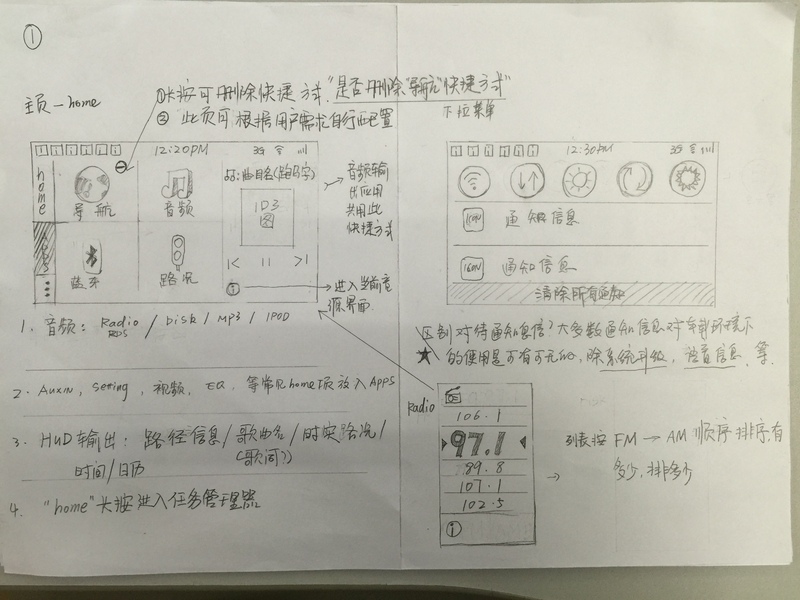 ①
主页—home
①长按可删除快捷方式,"是否删除"导航"快捷方式"
② 此页可根据用户需求自行配置
下拉菜单
12:20PM 3G
home
导航
音频
蓝牙
路况
品:曲目名(路名字)
ID3
图
音频输
出应用
共用此
快捷方式
进入当前音
源界面
12:30PM 3G
ICON 通知信息
ICON 通知信息
清除所有通知
1. 音频: Radio / Disk / MP3 / IPOD
RDS
2. AUXIN, setting, 视频, EQ, 等常见home项放入APPS
3. HUD输出: 路径信息/歌曲名/时实路况/
(歌词?)
时间/日历
4. "home"长按进入任务管理器
区别对待通知信息?大多数通知信息对车载环境下
★ 的使用是可有可无的,除系统升级, 信息、等
Radio
106.1
97.1
89.8
107.1
102.5
列表按 FM → AM 顺序排序,有
多少,排多少